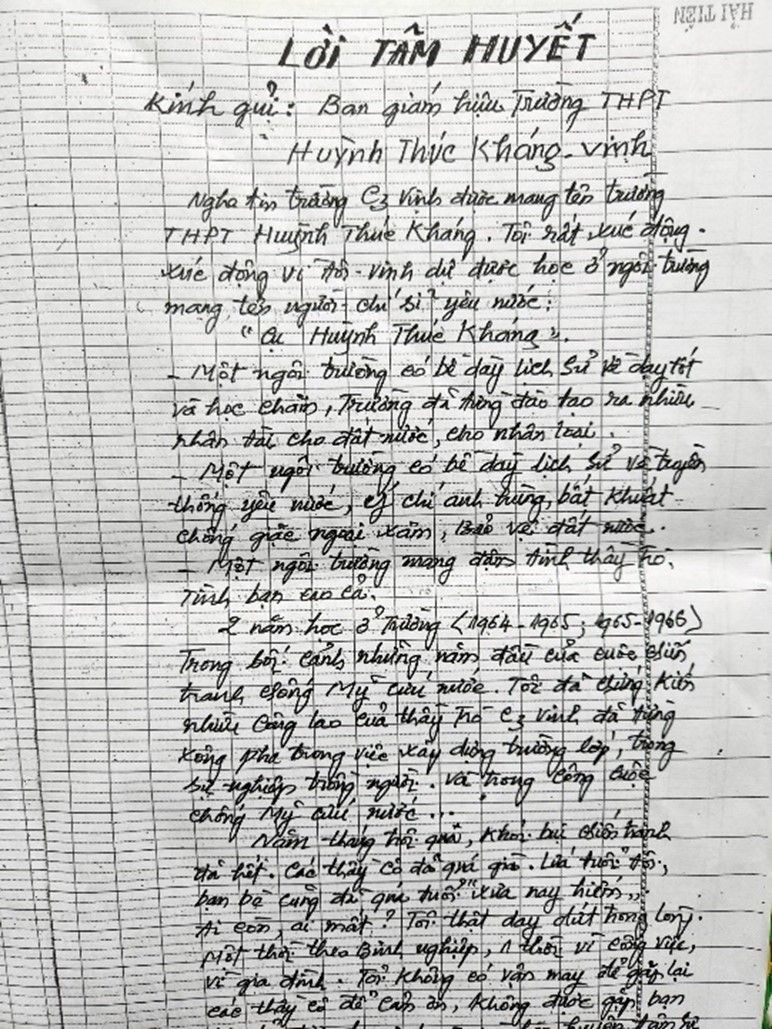 HẢI TIẾN
LỜI TÂM HUYẾT
Kính gửi: Ban giám hiệu Trường THPT
Huỳnh Thúc Kháng-Vinh
Nghe tin trường C3 Vinh được mang tên trường
THPT Huỳnh Thúc Kháng. Tôi rất xúc động.
Xúc động vì tôi-vinh dự được học ở ngôi trường
mang tên người-chí sĩ yêu nước:
"Cụ Huỳnh Thúc Kháng".
- Một ngôi trường có bề dày lịch sử về dạy tốt
và học chăm, Trường đã từng đào tạo ra nhiều
nhân tài cho đất nước, cho nhân loại.
- Một ngôi trường có bề dày lịch sử về truyền
thống yêu nước, ý chí anh hùng, bất khuất
chống giặc ngoại xâm, bảo vệ đất nước.
- Một ngôi trường mang đậm tình thầy trò.
Tình bạn cao cả.
2 năm học ở Trường (1964-1965; 1965-1966)
Trong bối cảnh những năm đầu của cuộc chiến
tranh chống Mỹ cứu nước. Tôi đã chứng kiến
nhiều công lao của thầy trò C3 Vinh đã từng
xông pha trong việc xây dựng trường lớp, trong
sự nghiệp trồng người. và trong công cuộc
chống Mỹ cứu nước...
Năm-tháng trôi qua, khói bụi chiến tranh
đã hết. Các thầy cô đã quá già. Lứa tuổi tôi,
bạn bè cũng đã quá tuổi "xưa nay hiếm".
Ai còn, ai mất? Tôi thật day dứt trong lòng.
Một thời theo Binh nghiệp, 1 thời vì công việc,
vì gia đình. Tôi không có vận may để gặp lại
các thầy cô để cảm ơn, không được gặp bạn